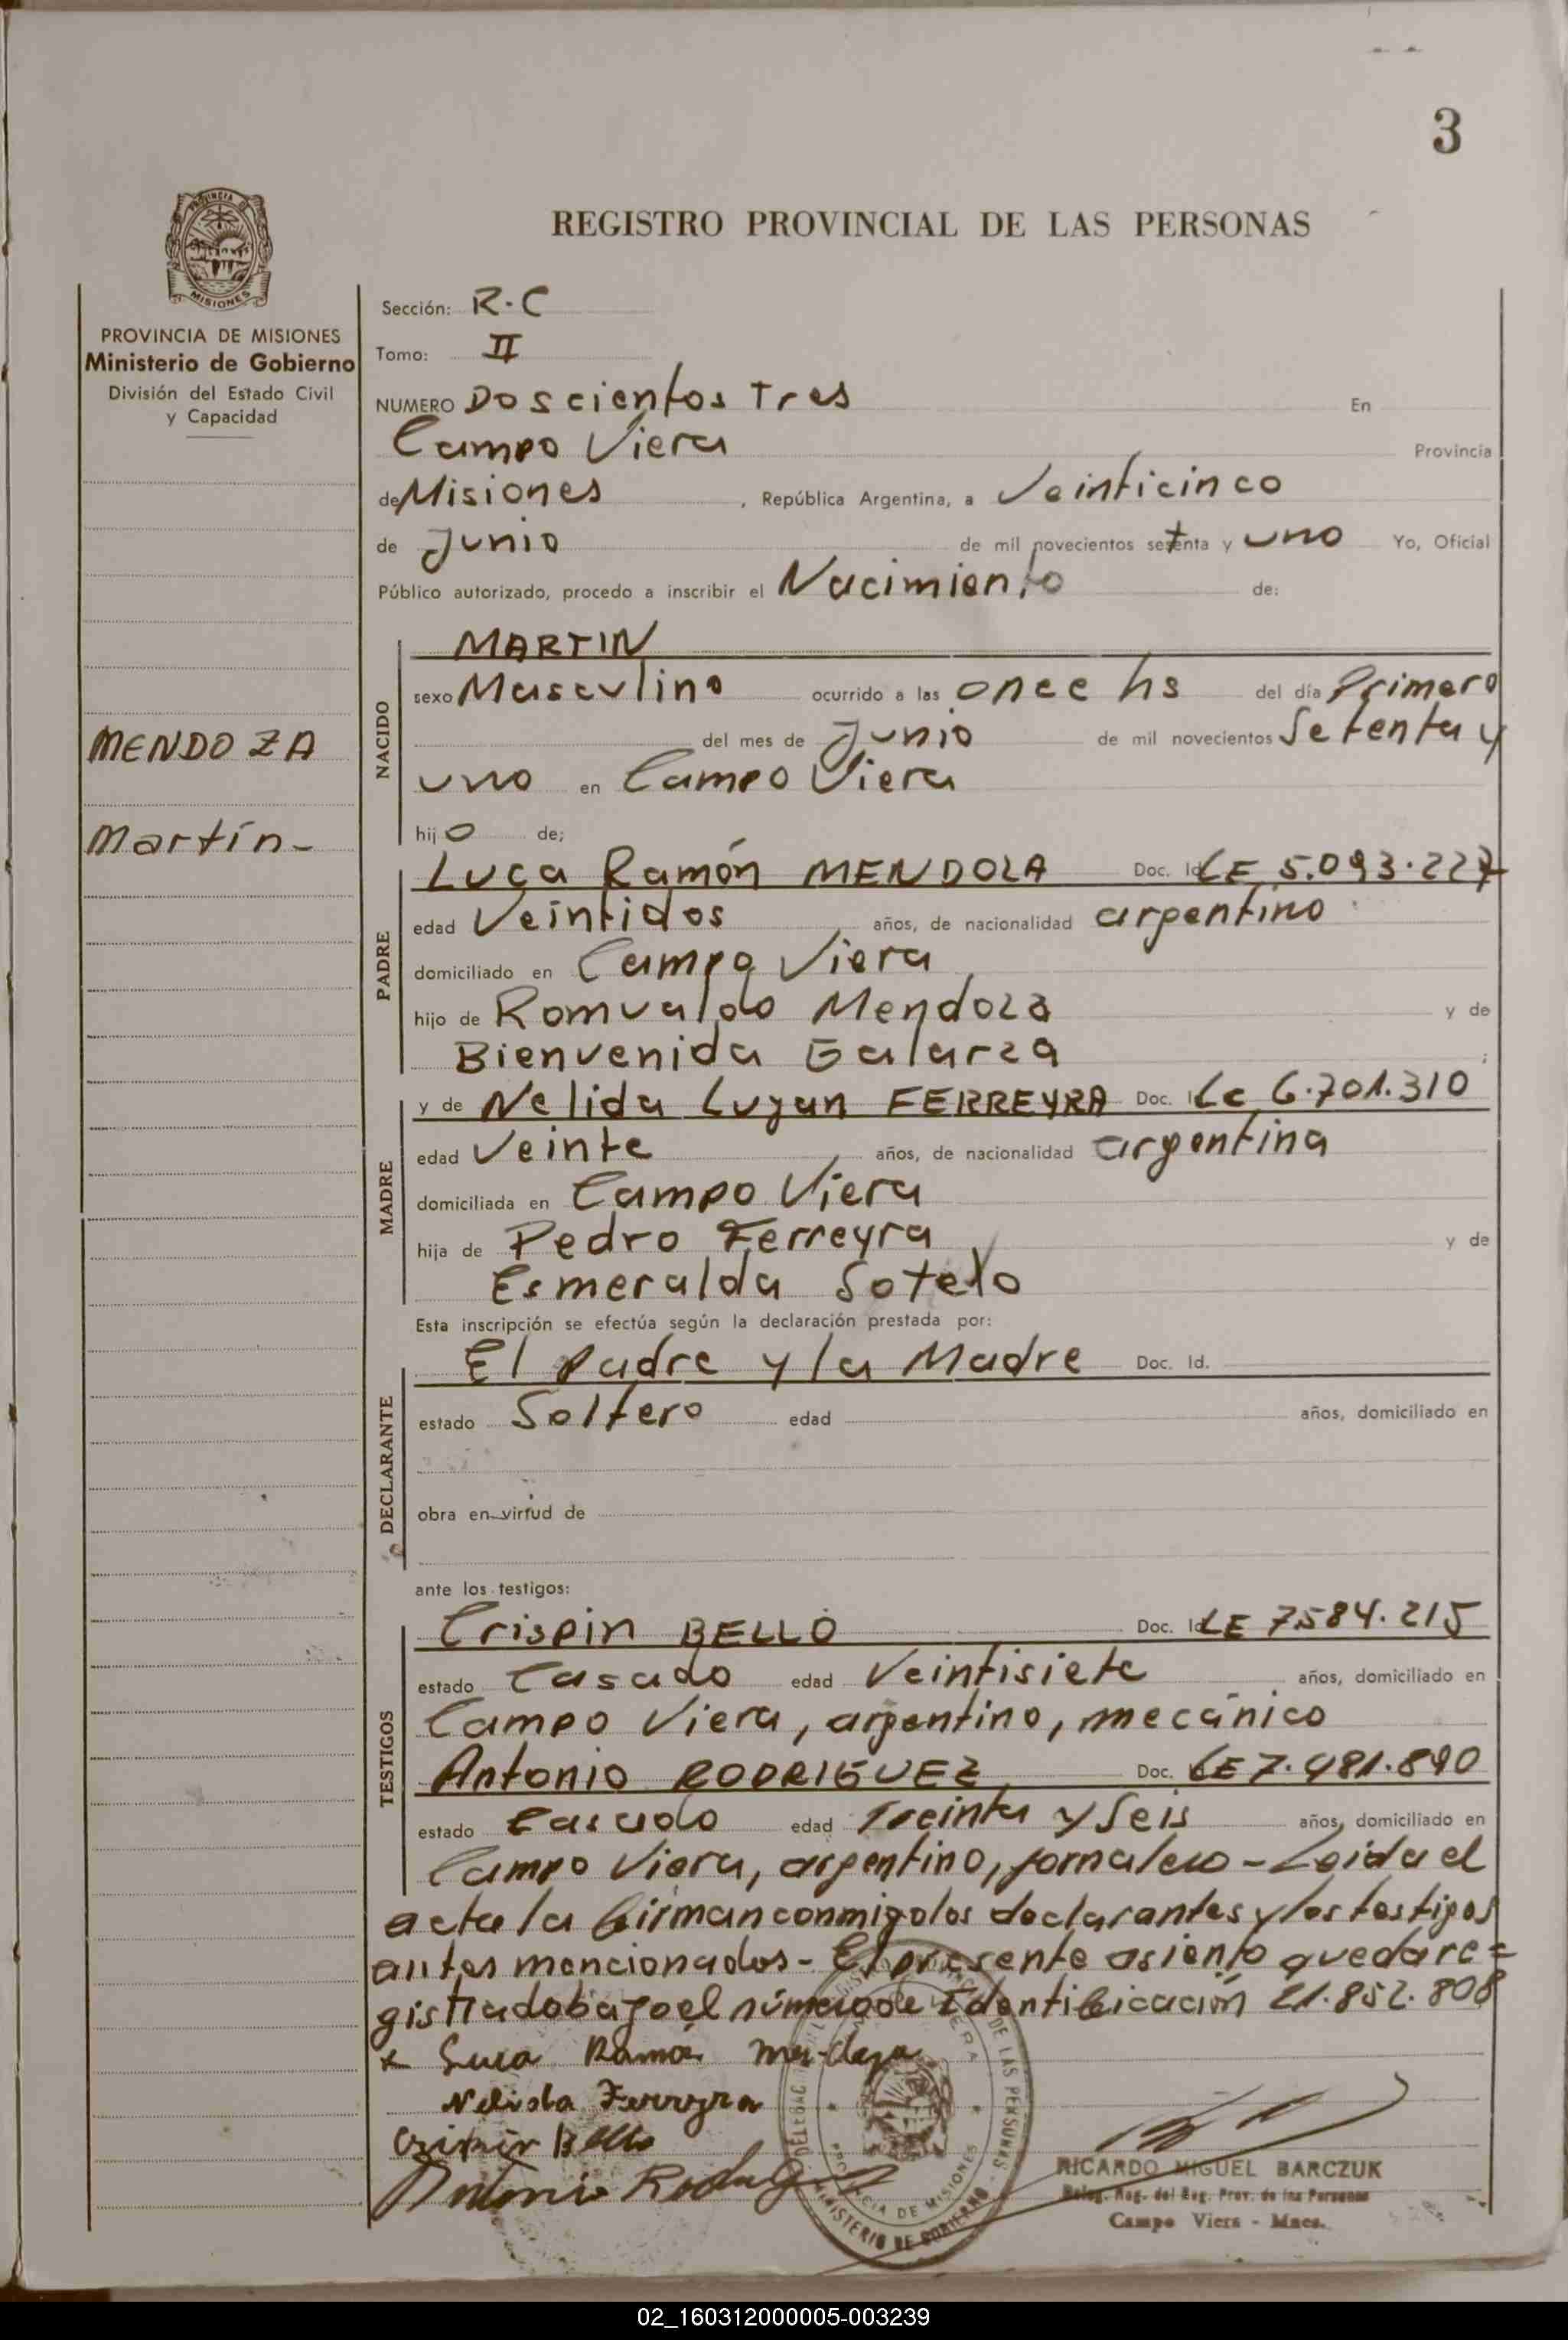 3
REGISTRO PROVINCIAL DE LAS PERSONAS
PROVINCIA
MISIONES
PROVINCIA DE MISIONES
Ministerio de Gobierno
División del Estado Civil
y Capacidad
MENDOZA
Martín-
Sección: R.C
Tomo: II
NUMERO Doscientos Tres En
Campo Viera Provincia
de Misiones, República Argentina, a Veinticinco
de Junio de mil novecientos setenta y uno Yo, Oficial
Público autorizado, procedo a inscribir el Nacimiento de:
NACIDO
MARTIN
sexo Masculino ocurrido a las once hs del día Primero
del mes de Junio de mil novecientos Setenta y
uno en Campo Viera
hijo de;
PADRE
Luca Ramón MENDOZA Doc. Id LE 5.093.227
edad Veintidos años, de nacionalidad argentino
domiciliado en Campo Viera
hijo de Romualdo Mendoza y de
Bienvenida Galarza ;
MADRE
y de Nelida Lujan FERREYRA Doc. I LC 6.701.310
edad Veinte años, de nacionalidad argentina
domiciliada en Campo Viera
hija de Pedro Ferreyra y de
Esmeralda Sotelo
Esta inscripción se efectúa según la declaración prestada por:
DECLARANTE
El padre y la Madre Doc. Id.
estado Soltero edad años, domiciliado en
obra en virtud de
ante los testigos:
TESTIGOS
Crispin BELLO Doc. Id LE 7584.215
estado Casado edad Veintisiete años, domiciliado en
Campo Viera, argentino, mecánico
Antonio RODRIGUEZ Doc. LE 7.481.890
estado Casado edad Treinta y Seis años, domiciliado en
Campo Viera, argentino, jornalero - Leida el
acta la firman conmigo los declarantes y los testigos
antes mencionados - El presente asiento queda re=
gistrado bajo el número de Identificación 21.852.808
x Luca Ramón Mendoza
Nelida Ferreyra
Crispin Bello
Antonio Rodrig
DE LAS PERSONAS
PROVINCIA DE MISIONES
MINISTERIO DE GOBIERNO
RICARDO MIGUEL BARCZUK
Deleg. Reg. del Reg. Prov. de las Personas
Campo Viera - Mnes.
02_160312000005-003239